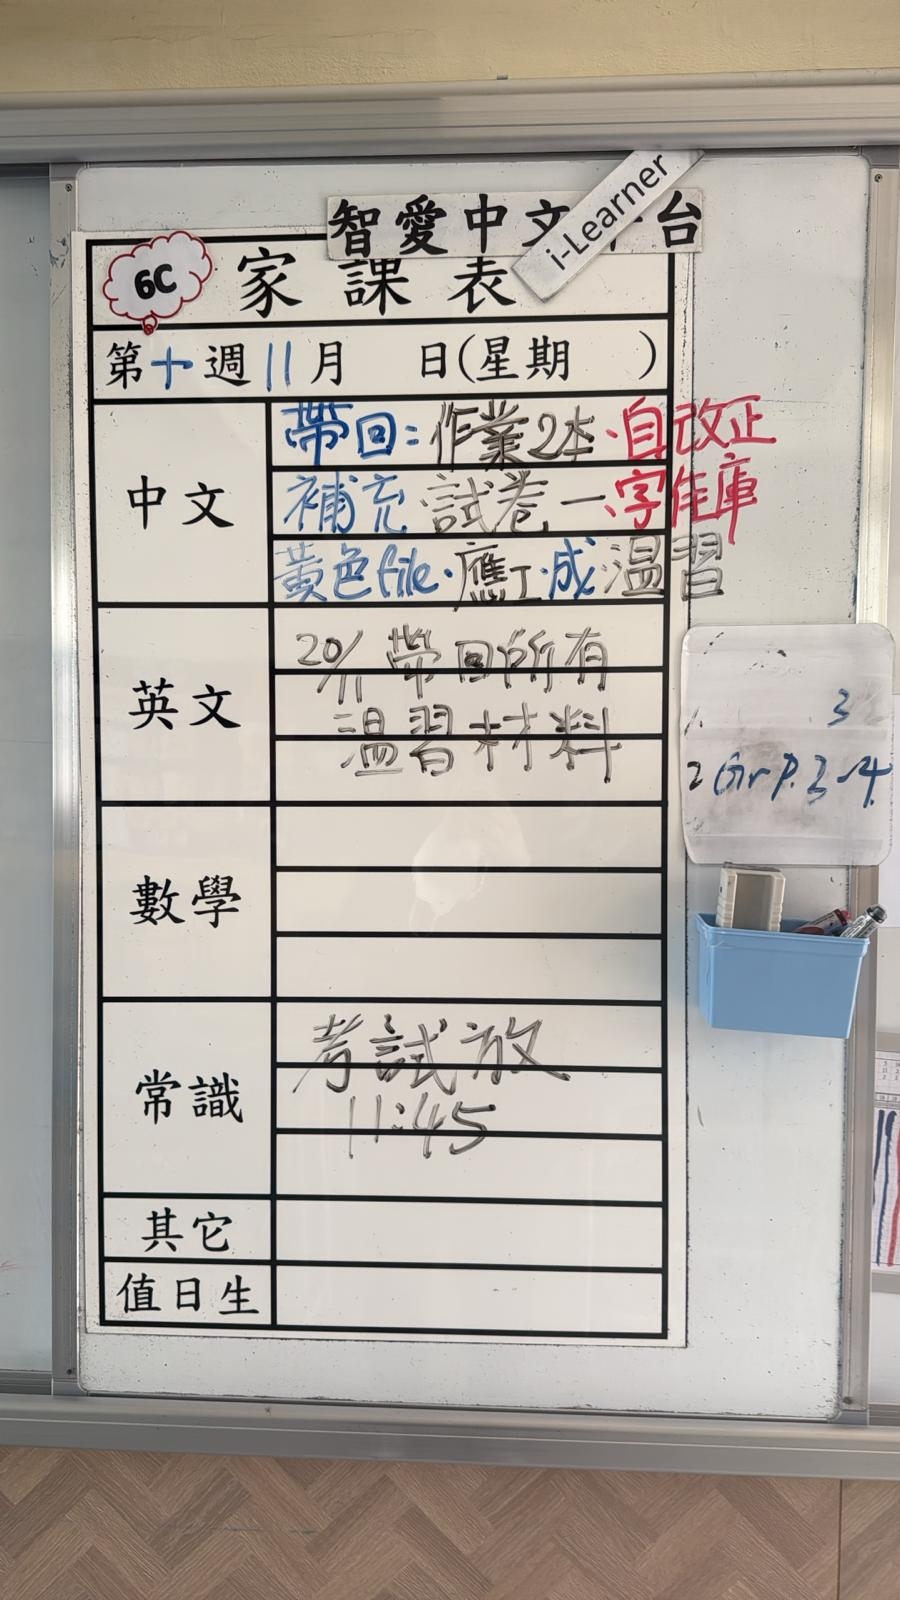 智愛中文 台
i-Learner
6C
家課表
第十週11月 日(星期 )
中文
帶回：作業2本·自改正
補充 試卷一·字佳庫
黃色file·應工·成·温習
英文
20/11 帶回所有
温習材料
數學
常識
考試放
11:45
其它
值日生
1. 3
2 Gr P.3-4